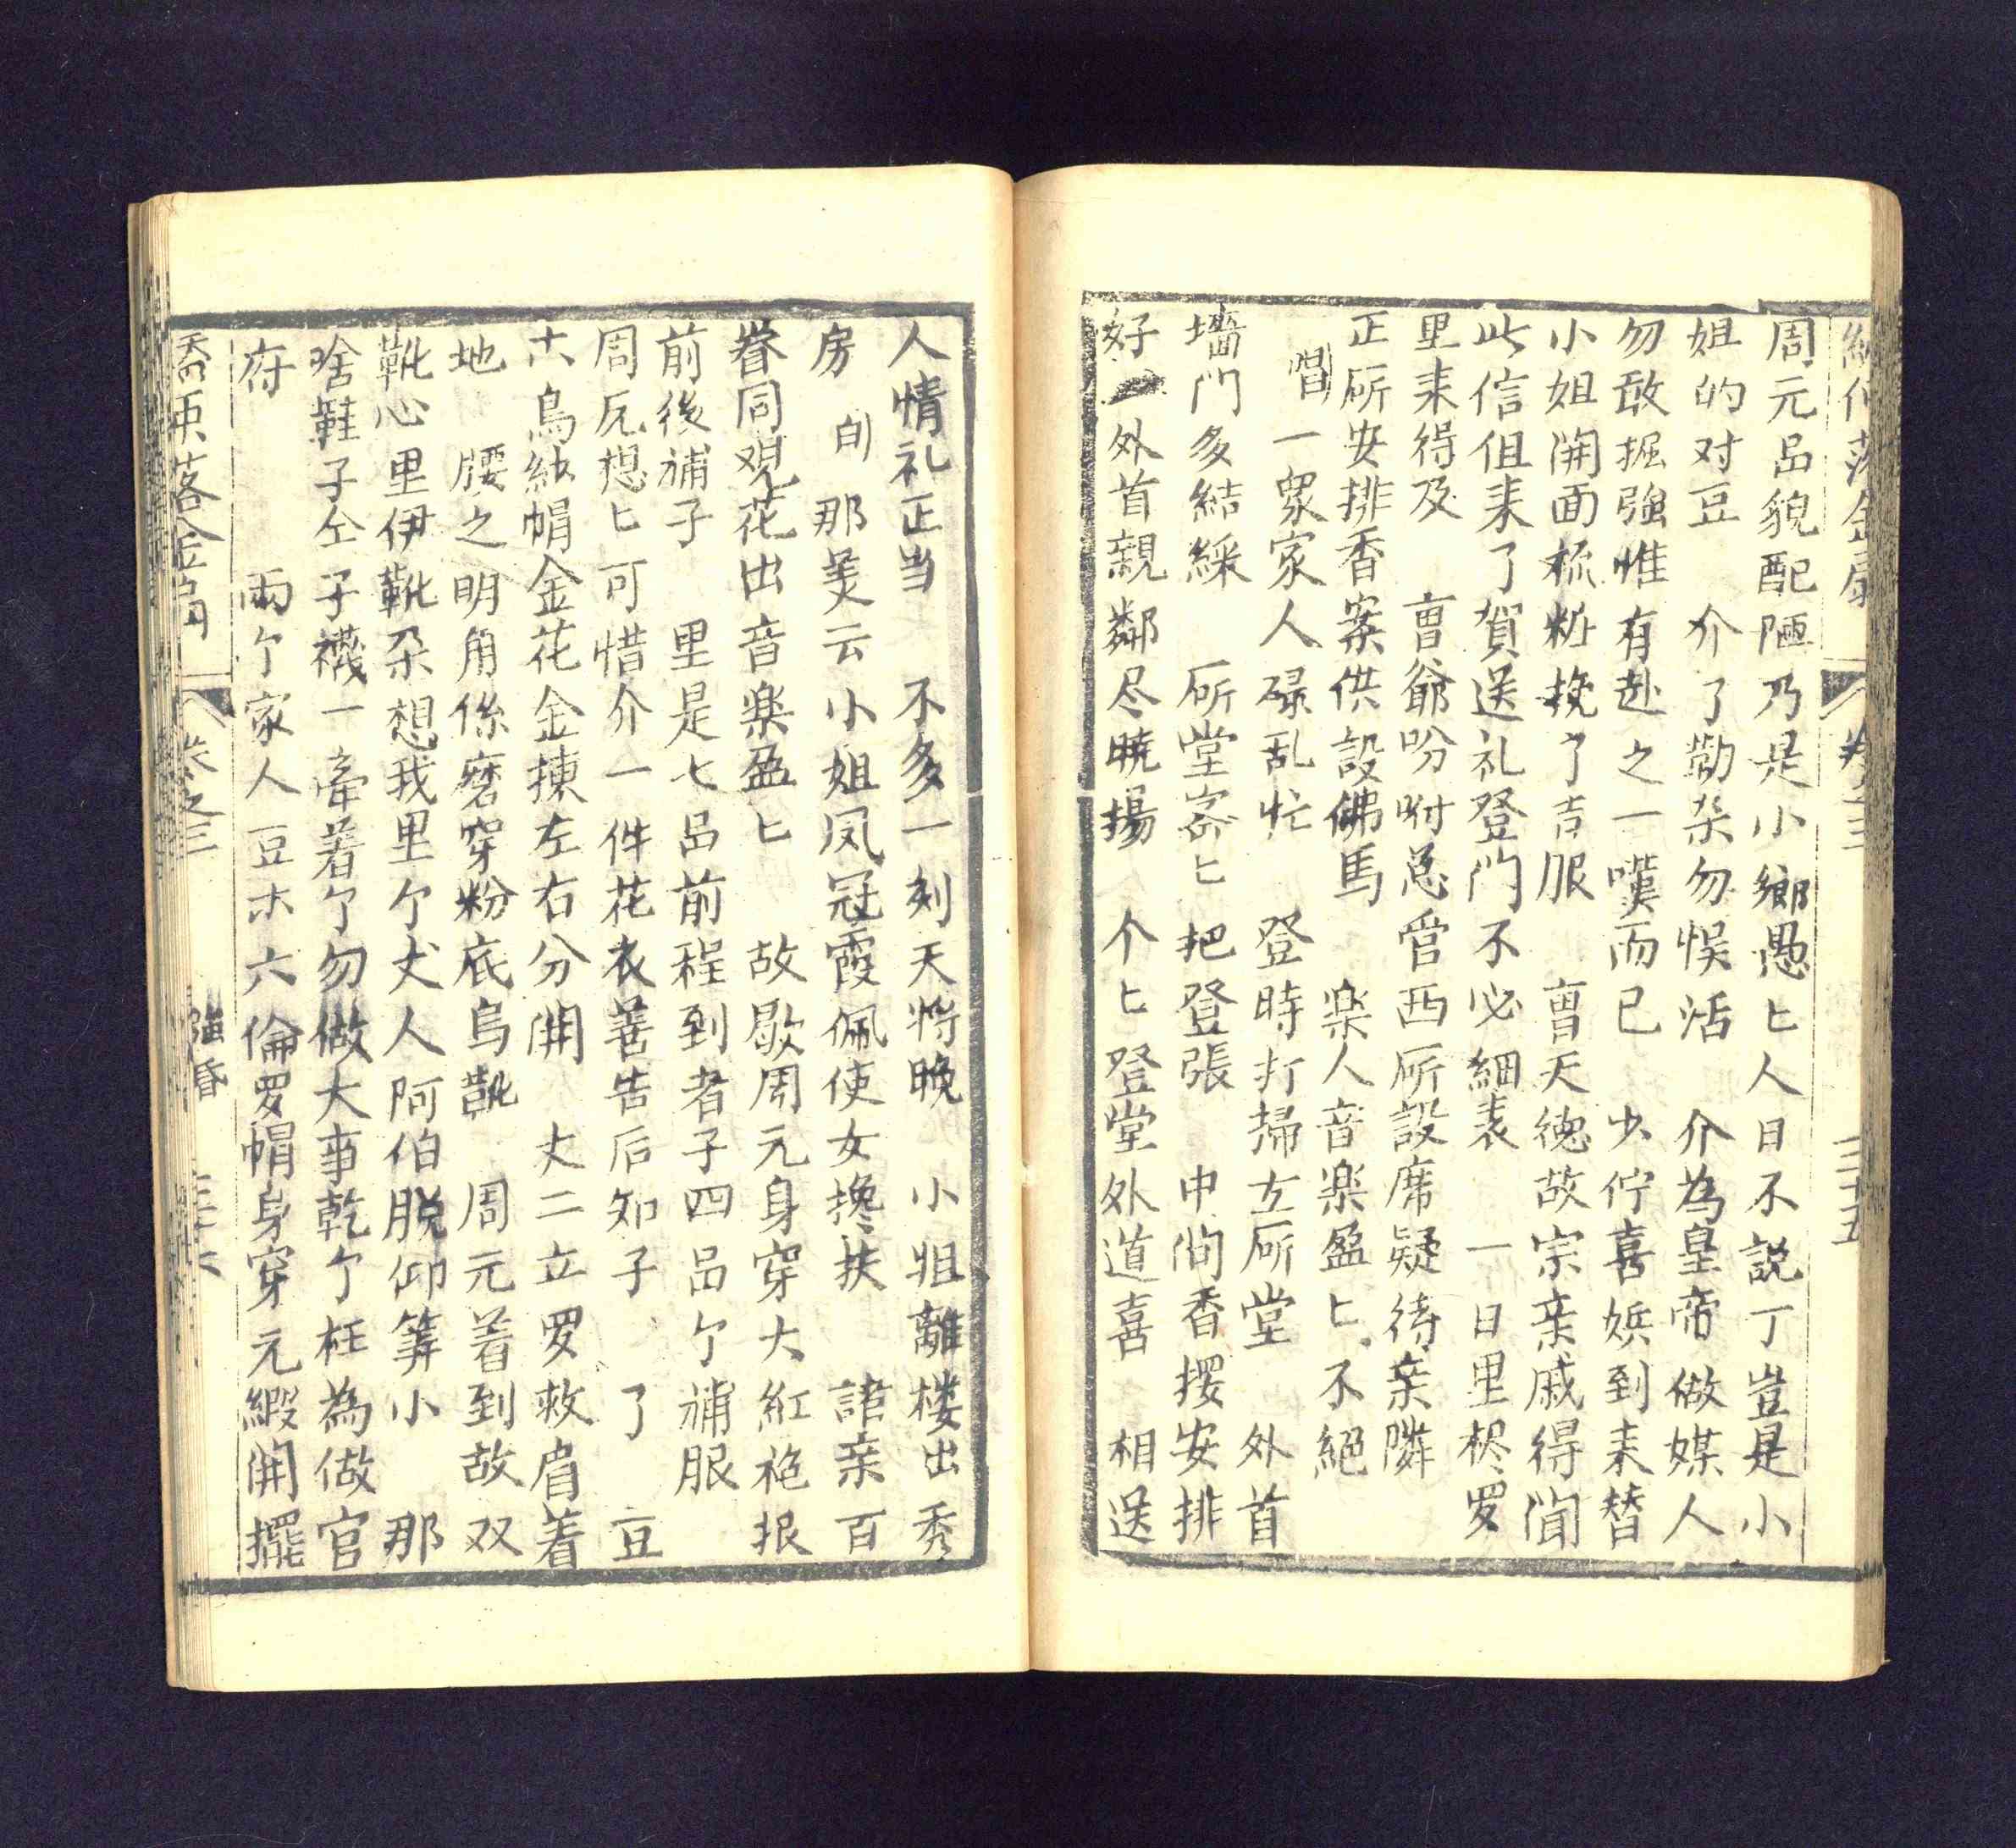 周元品貌配陋乃是小鄉愚匕人日不説丁豈是小
姐的对豆 介了勸杀勿悮活 介為皇帝做媒人
勿敢掘強惟有赴之一嘆而已 少佇喜娯到耒替
小姐開面梳粧挽了吉服 曺天德故宗亲戚得聞
此信伹耒了賀送礼登門不必細表 一日里栘罗
里耒得及 曺爺吩咐总管西所設席疑待亲隣
正所安排香案供設佛馬 楽人音楽盈匕不絕
唱 一眾家人碌乱忙 登時打掃左所堂 外首
墻門多結綵 所堂密匕把登張 中间香按安排
好 外首親鄰尽曉揚 个匕登堂外道喜 相送
人情礼正当 不多一刻天将晚 小姐離楼出秀
房 白 那美云小姐凤冠霞佩使女搀扶 諸亲百
眷同观花出音楽盈匕 故歇周元身穿大紅袍抿
前後補子 里是七品前程到者子四品个補服
周元想匕可惜介一件花衣善告后知子 了 豆
烏紗帽金花金揀左右分開 丈二立罗救肩着
地 腰之明角係磨穿粉底烏靴 周元着到故双
靴心里伊靴朶想我里个丈人阿伯脱仰筭小 那
啥鞋子仝子襪一牽着个勿做大事乾个枉為做官
府 兩个家人豆朩六倫罗帽身穿元緞開擺
落金扇 卷之三 強昏 三十六
卷之三 三十五